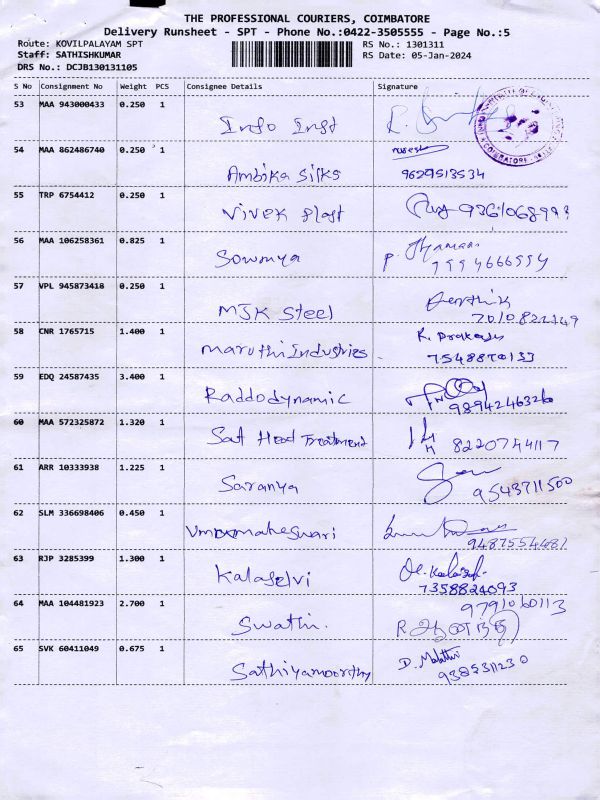 THE PROFESSIONAL COURIERS, COIMBATORE
Delivery Runsheet - SPT - Phone No.:0422-3505555 - Page No.:5
Route: KOVILPALAYAM SPT RS No.: 1301311
Staff: SATHISHKUMAR RS Date: 05-Jan-2024
DRS No.: DCJB130131105
S No Consignment No Weight PCS Consignee Details Signature
53 MAA 943000433 0.250 1
Info Inst
54 MAA 862486740 0.250 1
Ambika Silks 9629513534
55 TRP 6754412 0.250 1
Vivek Plast
56 MAA 106258361 0.825 1
Sowmya 7994666554
57 VPL 945873418 0.250 1
MJK Steel
58 CNR 1765715 1.400 1 K. Prakash
Maruthi Industries. 7548870133
59 EDQ 24587435 3.400 1
Raddodynamic 9894246326
60 MAA 572325872 1.320 1
Sat Heed Treatment 8220744117
61 ARR 10333938 1.225 1
Saranya 9543711500
62 SLM 336698406 0.450 1
9487554481
63 RJP 3285399 1.300 1
Kalaselvi 7358824093
64 MAA 104481923 2.700 1 9791060113
Swathi. R ஆனந்தி
65 SVK 60411049 0.675 1 D. Malathi
Sathiyamoorthy 9385311230